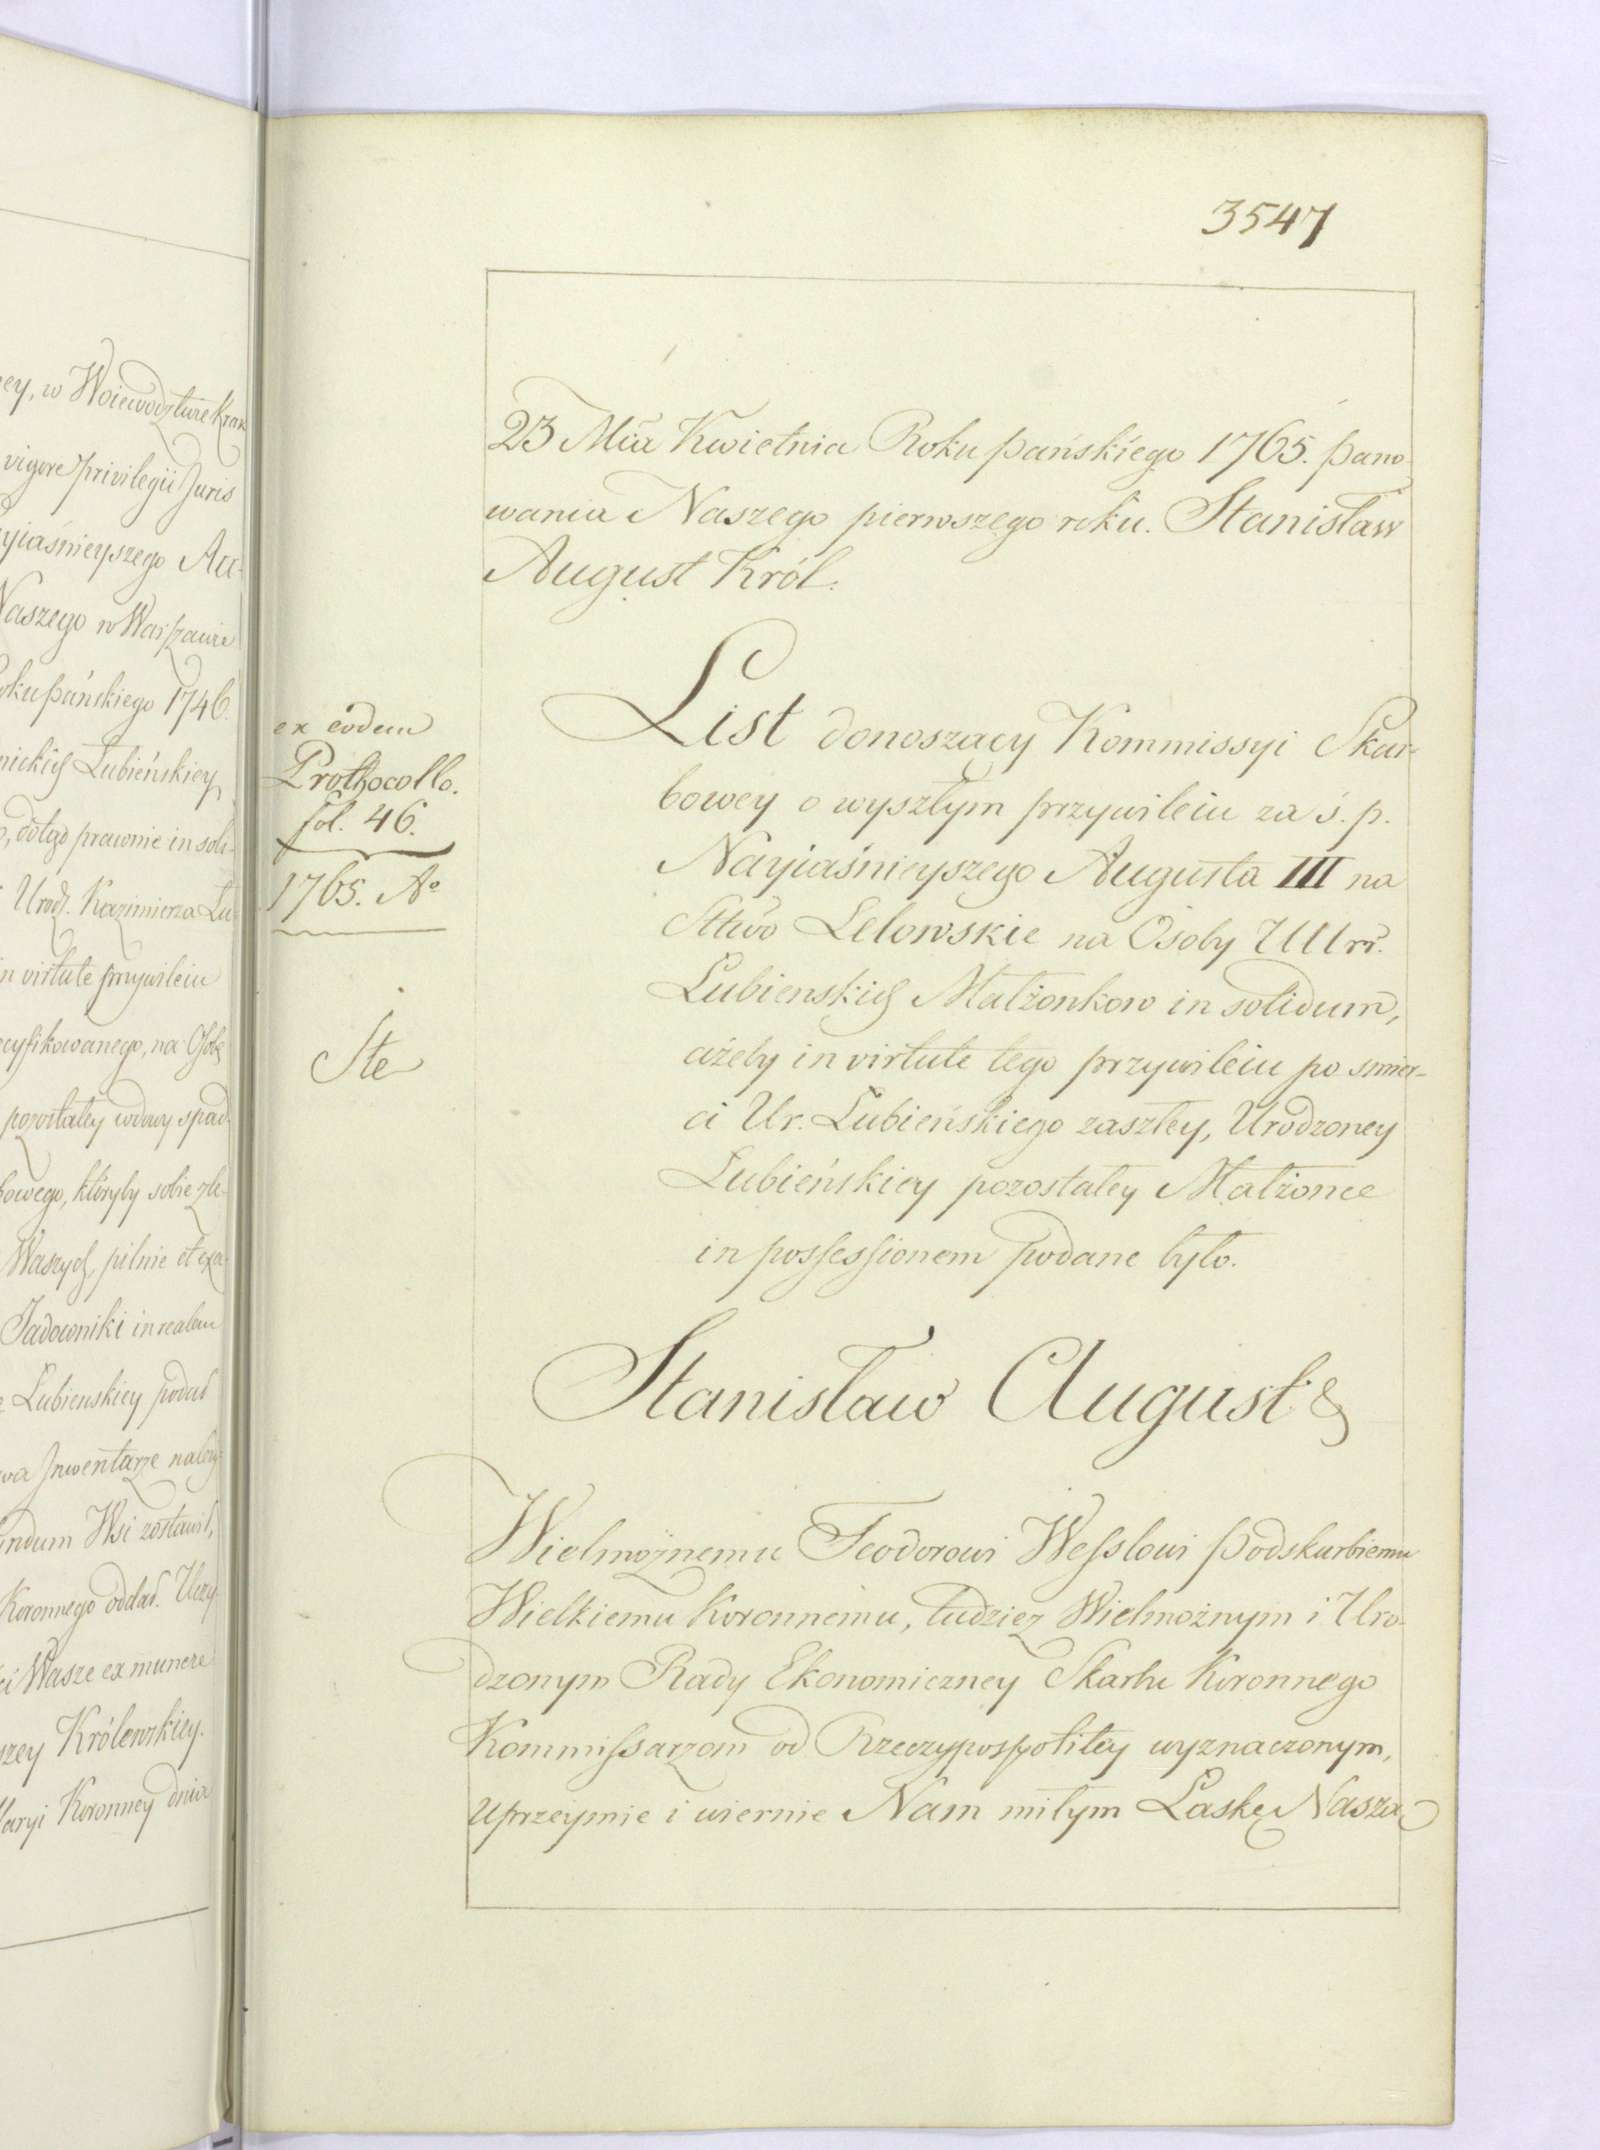 ey, w Woiewodztwie Krak
vigore privilegii Juris
yiaśnieyszego Au-
Naszego w Warszawie
oku Pańskiego 1746.
nickich Lubieńskiey
, dotąd prawnie in soli-
Urodz. Kazimierza Lu-
in virtute przywileiu
ecyfikowanego, na Osobę
pozostałey wdowy spad-
bowego, któryby sobie zle-
Waszych, pilnie et exa-
Jadowniki in realem
Lubienskiey podał
wa Jnwentarze należy-
undum Wsi zostawił,
Koronnego oddał. Uczy-
ci Wasze ex munere
szey Królewskiey.
llaryi Koronney dnia
3547
23 Mca Kwietnia Roku Pańskiego 1765. Pano-
wania Naszego pierwszego roku. Stanisław
August Król.
ex eodem
Prothocollo.
fol. 46.
1765. Aº
Ste
List donoszący Kommissyi Skar-
bowey o wyszłym przywileiu za ś. p.
Nayiaśnieyszego Augusta III na
Sttwo Lelowskie na Osoby UUrr.
Lubienskich Małżonkow in solidum,
ażeby in virtute tego przywileiu po smier-
ci Ur. Lubieńskiego zaszłey, Urodzoney
Lubieńskiey pozostałey Małżonce
in possessionem podane było.
Stanisław August &
Wielmożnemu Teodorowi Wesslowi Podskarbiemu
Wielkiemu Koronnemu, tudziez Wielmożnym i Uro-
dzonym Rady Ekonomiczney Skarbu Koronnego
Kommissarzom od Rzeczypospolitey wyznaczonym,
uprzeymie i wiernie Nam miłym Łaskę Naszą